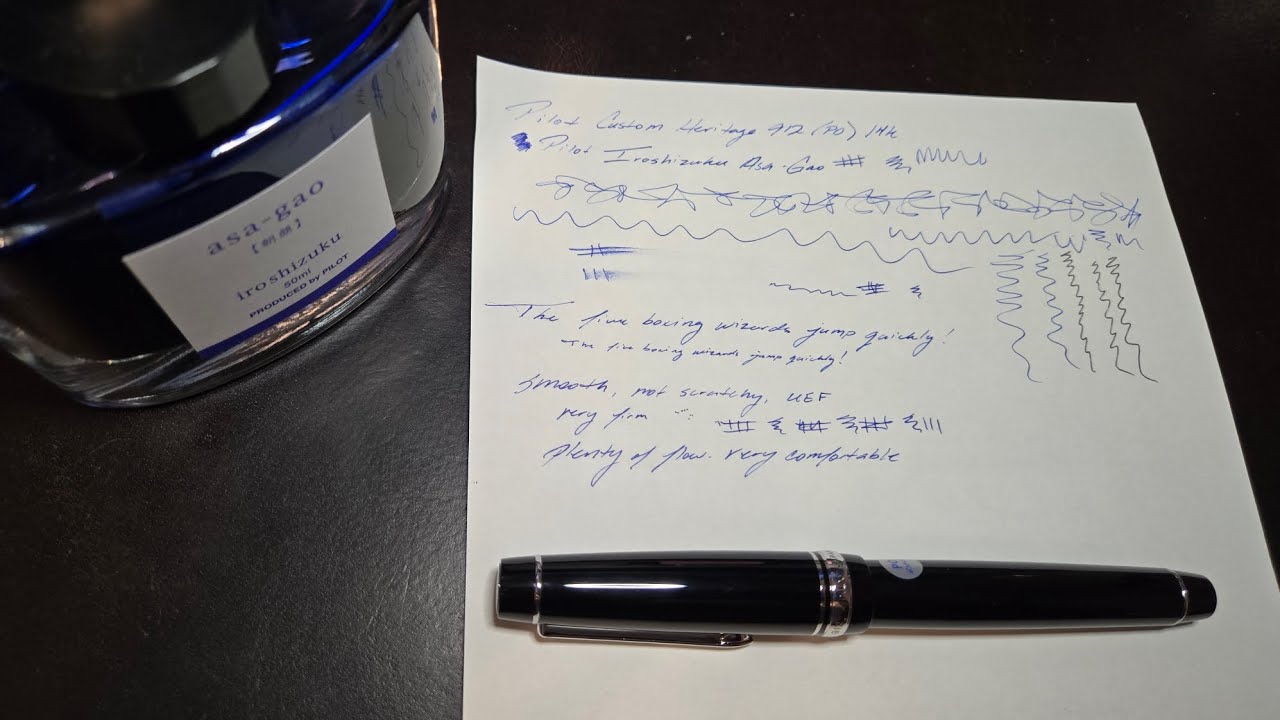 asa-gao
【朝顔】
iroshizuku
50ml
PRODUCED by PILOT
Pilot Custom Heritage 912 (PO) 14k
Pilot Iroshizuku Asa-Gao
The five boxing wizards jump quickly!
The five boxing wizards jump quickly!
Smooth, not scratchy, UEF
very firm
plenty of flow. very comfortable